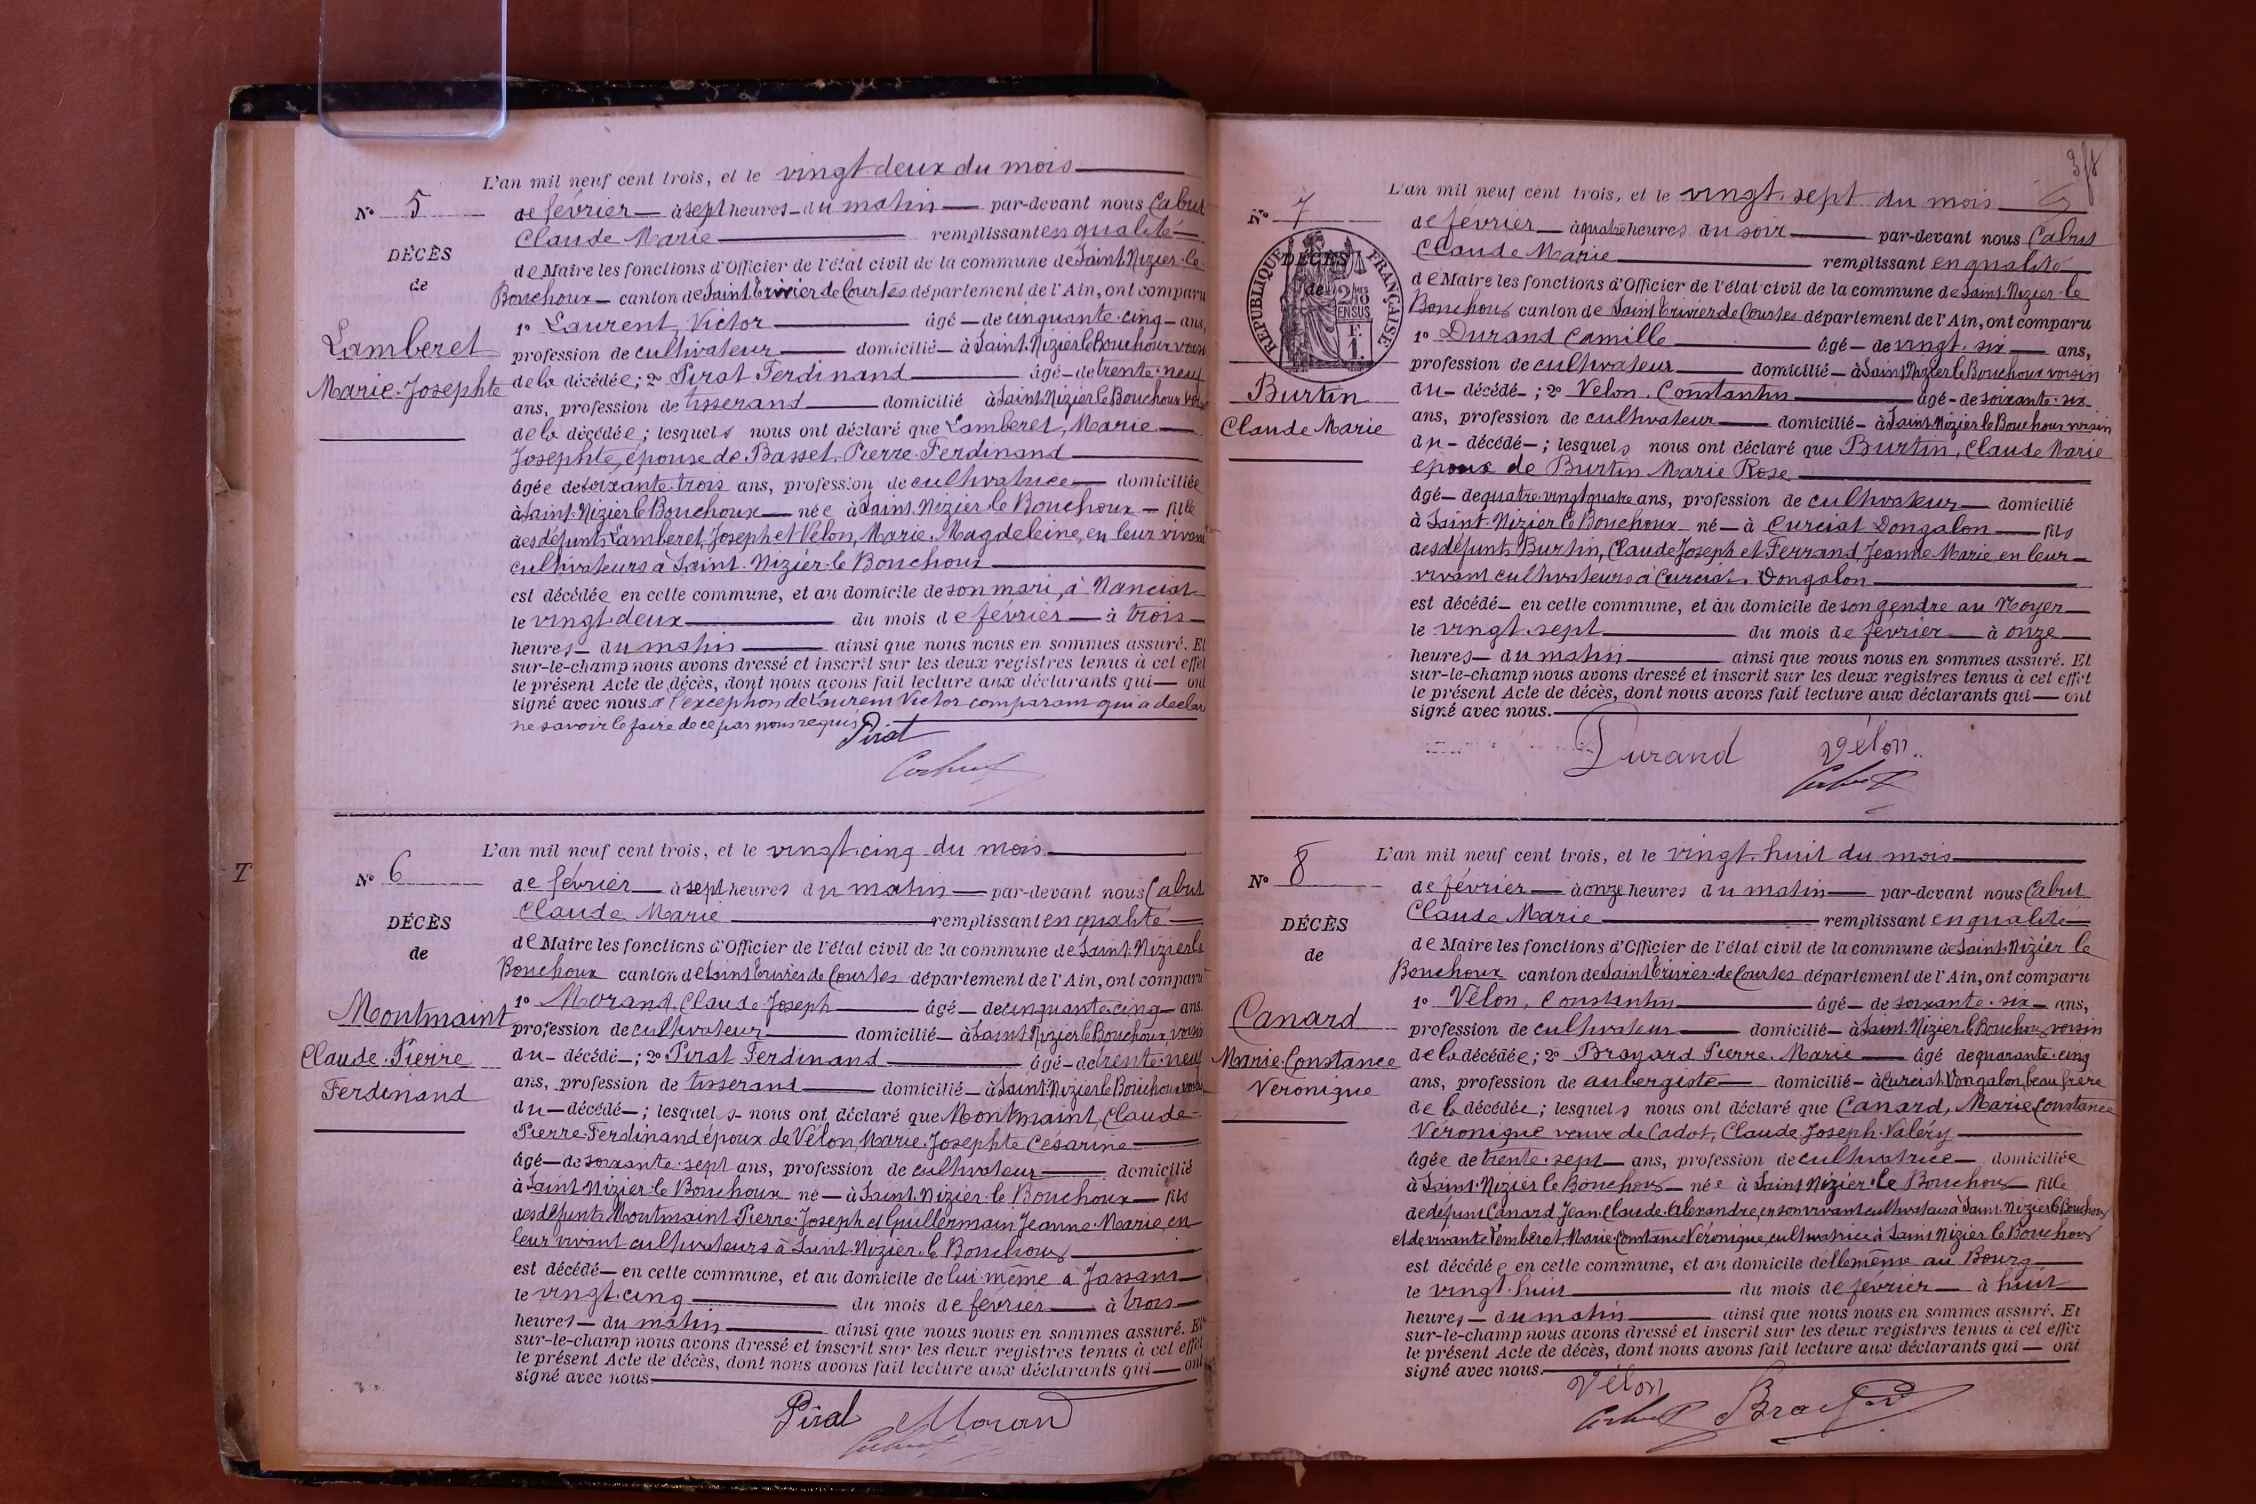 L'an mil neuf cent trois, et le vingt-deux du mois
N° 5
de février — à sept heures — du matin — par-devant nous Cabut
Claude Marie — remplissant en qualité
DÉCÈS
de
de Maire les fonctions d'Officier de l'état civil de la commune de Saint-Nizier-le-
Bouchoux — canton de Saint Trivier de Courtes département de l'Ain, ont comparu
1° Laurent, Victor — âgé — de cinquante-cinq — ans,
Lamberet
Marie-Josephte
profession de cultivateur — domicilié — à Saint-Nizier le Bouchoux voisin
de la décédée; 2° Pirat Ferdinand — âgé — de trente-neuf
ans, profession de tisserand — domicilié à Saint-Nizier le Bouchoux voisin
de la décédée; lesquels nous ont déclaré que Lamberet, Marie —
Josephte, épouse de Basset, Pierre-Ferdinand —
âgée de soixante-trois ans, profession de cultivatrice — domiciliée
à Saint-Nizier le Bouchoux — née à Saint-Nizier-le Bouchoux — fille
des défunts Lamberet, Joseph et Vélon, Marie-Magdeleine, en leur vivant
cultivateurs à Saint-Nizier-le Bouchoux —
est décédée en cette commune, et au domicile de son mari, à Nanciat
le vingt-deux — du mois de février — à trois —
heures — du matin — ainsi que nous nous en sommes assuré. Et
sur-le-champ nous avons dressé et inscrit sur les deux registres tenus à cet effet
le présent Acte de décès, dont nous avons fait lecture aux déclarants qui — ont
signé avec nous à l'exception de Laurent Victor comparant qui a déclaré
ne savoir le faire de ce par nous requis.
Pirat
Cabut
L'an mil neuf cent trois, et le vingt-cinq du mois
N° 6
de février — à sept heures du matin — par-devant nous Cabut
Claude Marie — remplissant en qualité
DÉCÈS
de
de Maire les fonctions d'Officier de l'état civil de la commune de Saint-Nizier le
Bouchoux canton de Saint Trivier de Courtes département de l'Ain, ont comparu
1° Morand, Claude Joseph — âgé — de cinquante-cinq — ans.
Montmaint
Claude-Pierre
Ferdinand
profession de cultivateur — domicilié — à Saint-Nizier le Bouchoux, voisin
du — décédé —; 2° Pirat Ferdinand — âgé — de trente-neuf
ans, profession de tisserand — domicilié — à Saint-Nizier le Bouchoux voisin
du — décédé —; lesquels nous ont déclaré que Montmaint, Claude-
Pierre-Ferdinand époux de Vélon, Marie-Josephte Césarine —
âgé — de soixante-sept ans, profession de cultivateur — domicilié
à Saint-Nizier-le Bouchoux né — à Saint-Nizier-le Bouchoux — fils
des défunts Montmaint Pierre-Joseph et Guillermain Jeanne-Marie, en
leur vivant cultivateurs à Saint-Nizier-le Bouchoux —
est décédé — en cette commune, et au domicile de lui-même à Jassans
le vingt-cinq — du mois de février — à trois —
heures — du matin — ainsi que nous nous en sommes assuré. Et
sur-le-champ nous avons dressé et inscrit sur les deux registres tenus à cet effet
le présent Acte de décès, dont nous avons fait lecture aux déclarants qui — ont
signé avec nous.
Piral Moran
Cabut
L'an mil neuf cent trois, et le vingt-sept du mois
N° 7
de février — à quatre heures du soir — par-devant nous Cabut
Claude Marie — remplissant en qualité
DÉCÈS
de
RÉPUBLIQUE FRANÇAISE
de Maire les fonctions d'Officier de l'état civil de la commune de Saint-Nizier-le
Bouchoux canton de Saint Trivier de Courtes département de l'Ain, ont comparu
1° Durand Camille — âgé — de vingt-six — ans,
profession de cultivateur — domicilié — à Saint-Nizier le Bouchoux voisin
Burtin
Claude Marie
du — décédé —; 2° Velon, Constantin — âgé — de soixante-six
ans, profession de cultivateur — domicilié — à Saint-Nizier le Bouchoux voisin
du — décédé —; lesquels nous ont déclaré que Burtin, Claude Marie
époux de Burtin Marie Rose —
âgé — de quatre-vingt quatre ans, profession de cultivateur — domicilié
à Saint-Nizier le Bouchoux né — à Curciat Dongalon — fils
des défunts Burtin, Claude Joseph et Ferrand, Jeanne Marie en leur —
vivant cultivateurs à Curciat-Dongalon —
est décédé — en cette commune, et au domicile de son gendre au Noyer —
le vingt-sept — du mois de février — à onze —
heures — du matin — ainsi que nous nous en sommes assuré. Et
sur-le-champ nous avons dressé et inscrit sur les deux registres tenus à cet effet
le présent Acte de décès, dont nous avons fait lecture aux déclarants qui — ont
signé avec nous.
Durand Vélon
Cabut
L'an mil neuf cent trois, et le vingt-huit du mois
N° 8
de février — à onze heures du matin — par-devant nous Cabut
Claude Marie — remplissant en qualité
DÉCÈS
de
de Maire les fonctions d'Officier de l'état civil de la commune de Saint-Nizier le
Bouchoux canton de Saint Trivier-de Courtes département de l'Ain, ont comparu
1° Vélon, Constantin — âgé — de soixante-six — ans,
Canard
Marie-Constance
Veronique
profession de cultivateur — domicilié — à Saint-Nizier le Bouchoux voisin
de la décédée; 2° Brayard Pierre-Marie — âgé de quarante-cinq
ans, profession de aubergiste — domicilié — à Curciat-Dongalon, beau frère
de la décédée; lesquels nous ont déclaré que Canard, Marie Constance
Véronique veuve de Cadot, Claude Joseph-Valéry —
âgée de trente-sept — ans, profession de cultivatrice — domiciliée
à Saint-Nizier le Bouchoux — née à Saint Nizier-le Bouchoux — fille
de défunt Canard Jean-Claude-Alexandre, en son vivant cultivateur à Saint-Nizier le Bouchoux
et de vivante Lemberet, Marie-Constance Véronique, cultivatrice à Saint Nizier le Bouchoux
est décédée en cette commune, et au domicile d'elle même au Bourg —
le vingt-huit — du mois de février — à huit —
heures — du matin — ainsi que nous nous en sommes assuré. Et
sur-le-champ nous avons dressé et inscrit sur les deux registres tenus à cet effet
le présent Acte de décès, dont nous avons fait lecture aux déclarants qui — ont
signé avec nous.
Vélon
Cabut